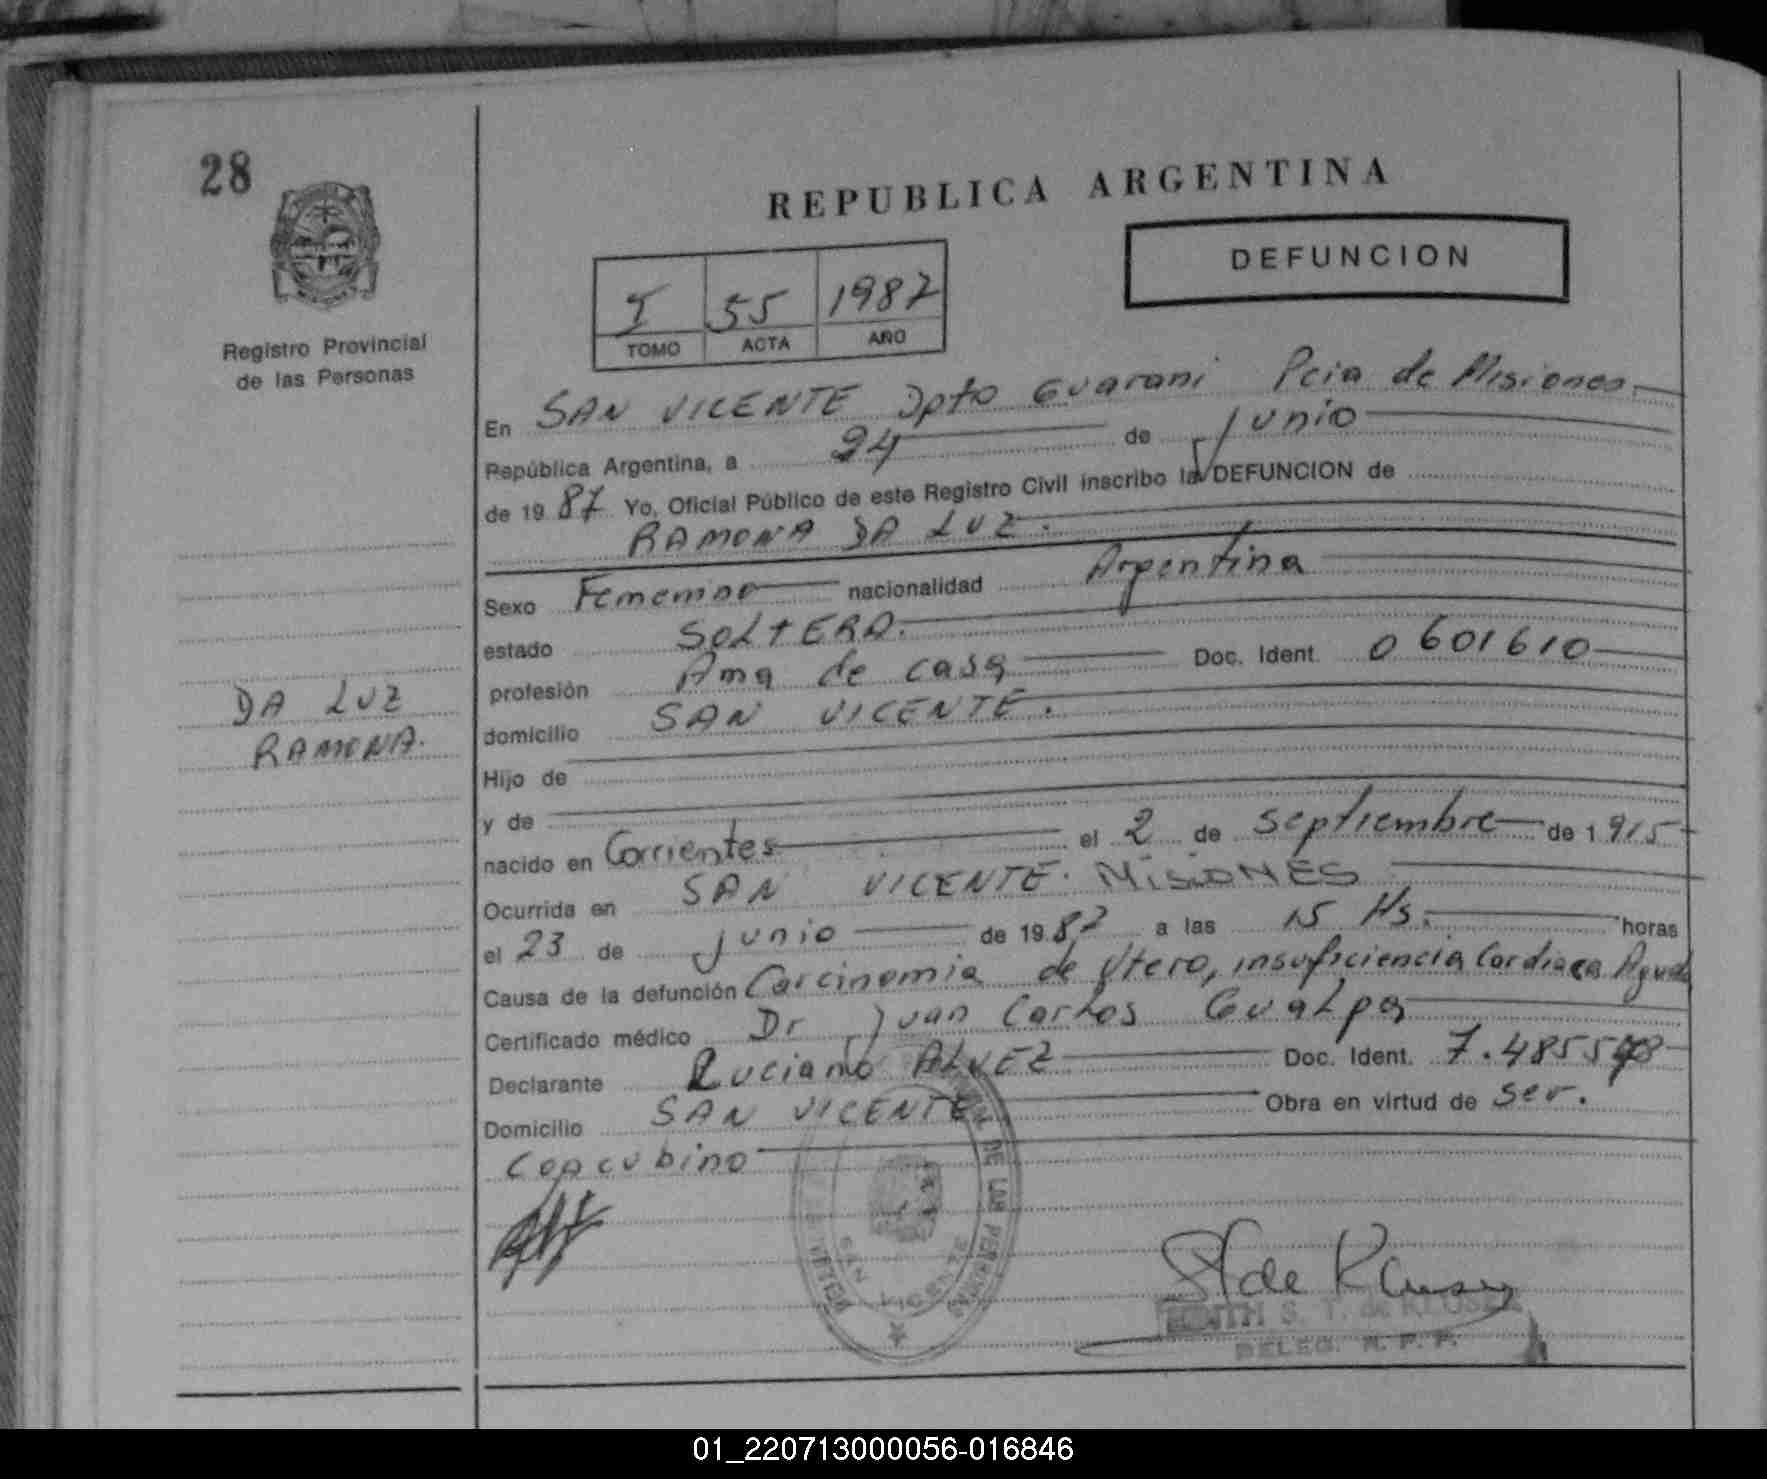 28
REPUBLICA ARGENTINA
DEFUNCION
I 55 1987
TOMO ACTA AÑO
Registro Provincial
de las Personas
En SAN VICENTE Dpto Guarani Pcia de Misiones
República Argentina, a 24 de junio
de 1987 Yo, Oficial Público de este Registro Civil inscribo la DEFUNCION de
RAMONA DA LUZ.
Sexo Femenino nacionalidad Argentina
estado SOLTERA.
profesión Ama de casa Doc. Ident. 0601610
domicilio SAN VICENTE.
DA LUZ
RAMONA.
Hijo de
y de
nacido en Corrientes el 2 de septiembre de 1915
Ocurrida en SAN VICENTE. MISIONES
el 23 de junio de 1987 a las 15 Hs. horas
Causa de la defunción Carcinomia de Utero, insuficiencia Cardiaca Aguda
Certificado médico Dr Juan Carlos Gualpa
Declarante Luciano ALVEZ Doc. Ident. 7.4855
Domicilio SAN VICENTE Obra en virtud de ser.
Concubino
DE LAS PERSONAS
SAN VICENTE
S. T. de Klusen
EDITH S. T. de KLUSEN
DELEG. R. P. P.
01_220713000056-016846